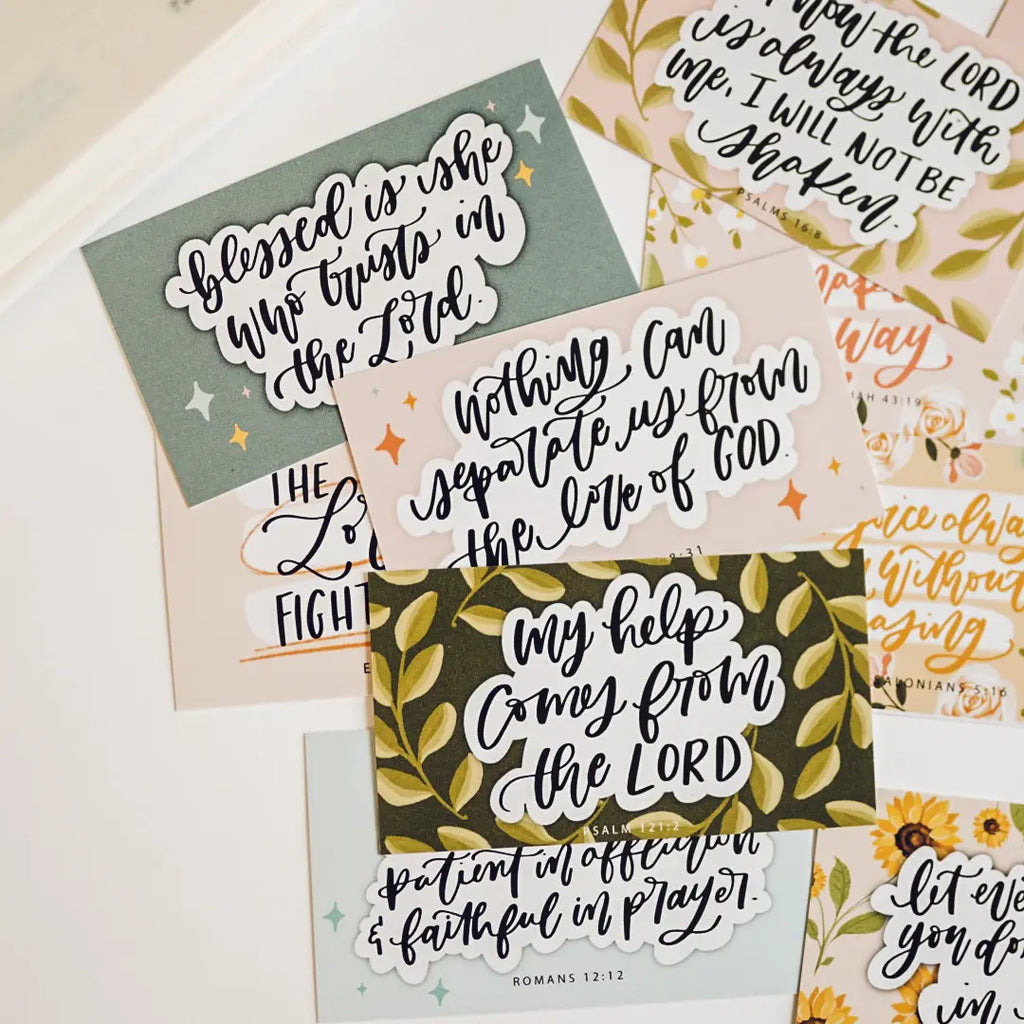 know the LORD
is always with
me, I WILL NOT BE
shaken.
PSALMS 16:8
blessed is she
who trusts in
the Lord.
way
43:19
nothing can
separate us from
the love of GOD.
8:31
THE
FIGHT
always
without
my help
comes from
the LORD
PSALM 121:2
5:16
patient in affliction
& faithful in prayer.
ROMANS 12:12
let
you do
in